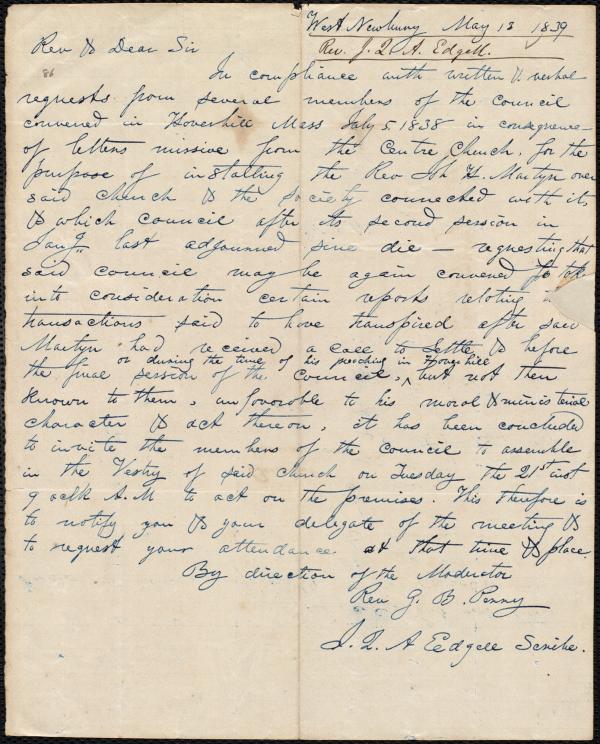 West Newbury May 13 1839
Rev. J. Q. A. Edgell.
Rev & Dear Sir
86
In compliance with written & verbal
requests from several members of the Council
convened in Haverhill Mass July 5. 1838 in consequence
of letters missive from the Centre Church. for the
purpose of installing the Rev Joh H. Martyn over
said church & the society connected with it,
& which council after its second session in
Jany. last adjourned sine die — requesting that
said council may be again convened to take
into consideration certain reports relating
transactions said to have transpired after said
Martyn had received a call to settle & before
or during the time of his preaching in Haverhill
the final session of the council, ^ but not then
known to them, unfavorable to his moral & ministerial
character & act thereon, it has been concluded
to invite the members of the council to assemble
in the Vestry of said church on Tuesday the 21st inst
9 oclk A.M to act on the premises. This therefore is
to notify you & your delegate of the meeting &
to request your attendance at that time & place.
By direction of the Moderator
Rev G. B. Perry
J. Q. A Edgell Scribe.